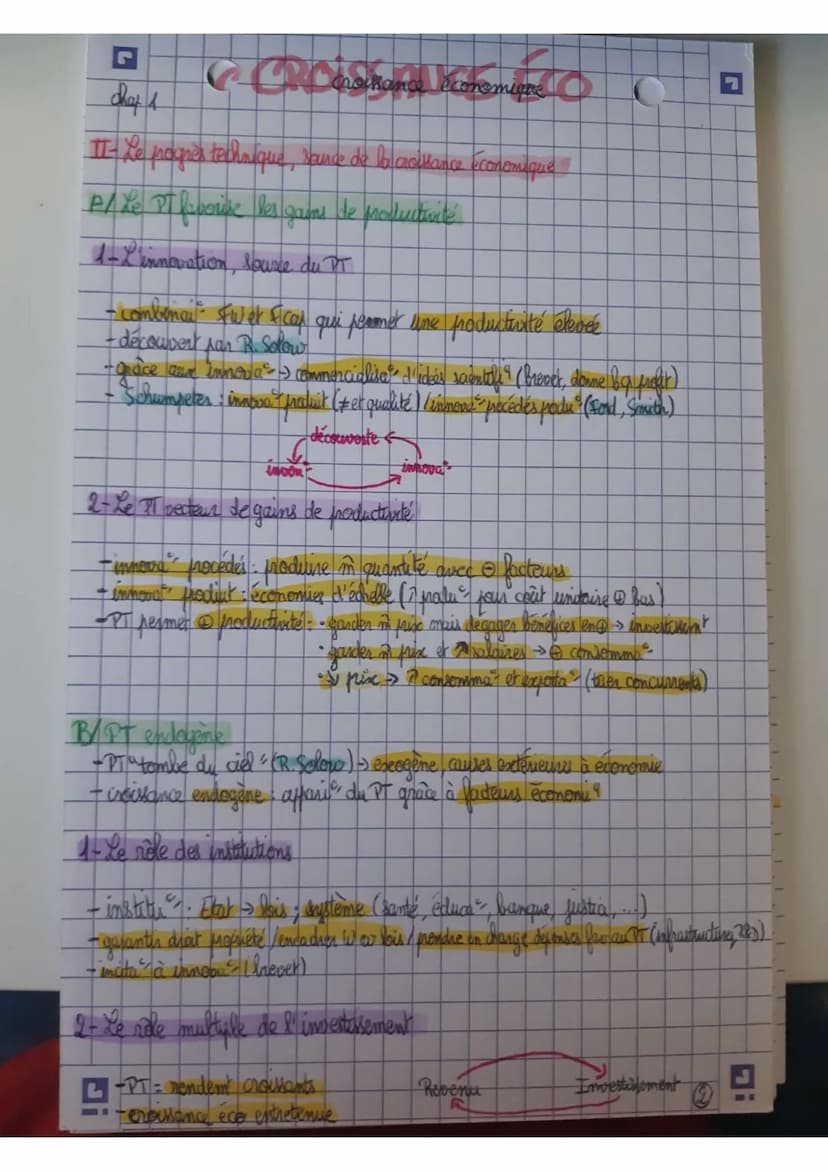 CROISSANCE ÉCO
Croissance économique
Chap 1
II- Le progrès technique, source de la croissance économique
A/ Le PT favorise les gains de productivité
1- L'innovation, source du PT
- combinai° FW et Fcap qui permet une productivité élevée
- découvert par R. Solow
- grâce aux innova° → commercialisa° d'idées scientifq (Brevet, donne profit)
- Schumpeter : innova° produit (≠ et qualité) / innova° procédés produ° (Ford, Smith)
découverte
innova°
2- Le PT vecteur de gains de productivité
- innova° procédés : produire m̂ quantité avec ⊖ facteurs
- innova° produit : économies d'échelle (↗ produ° pour coût unitaire ⊕ bas)
- PT permet ⊕ productivité : • garder m̂ prix mais dégager bénéfices en ⊕ → investissmt
• garder m̂ prix et ↗ salaires → ⊕ consomma°
• ↘ prix → ↗ consomma° et exporta° (tuer concurrents)
B/ PT endogène
- PT "tombe du ciel" (R. Solow) → exogène, causes extérieures à économie
- croissance endogène : appari° du PT grâce à facteurs économq
1- Le rôle des institutions
- institu° : Etat → lois ; système (santé, éduca°, banque, justice, ...)
- garantir droit propriété / encadrer W et lois / prendre en charge dépenses PT (infrastructures, R&D)
- incita° à innova° (brevet)
2- Le rôle multiple de l'investissement
- PT = rendemt croissants
- croissance éco entretenue
Revenu
Investissement
2